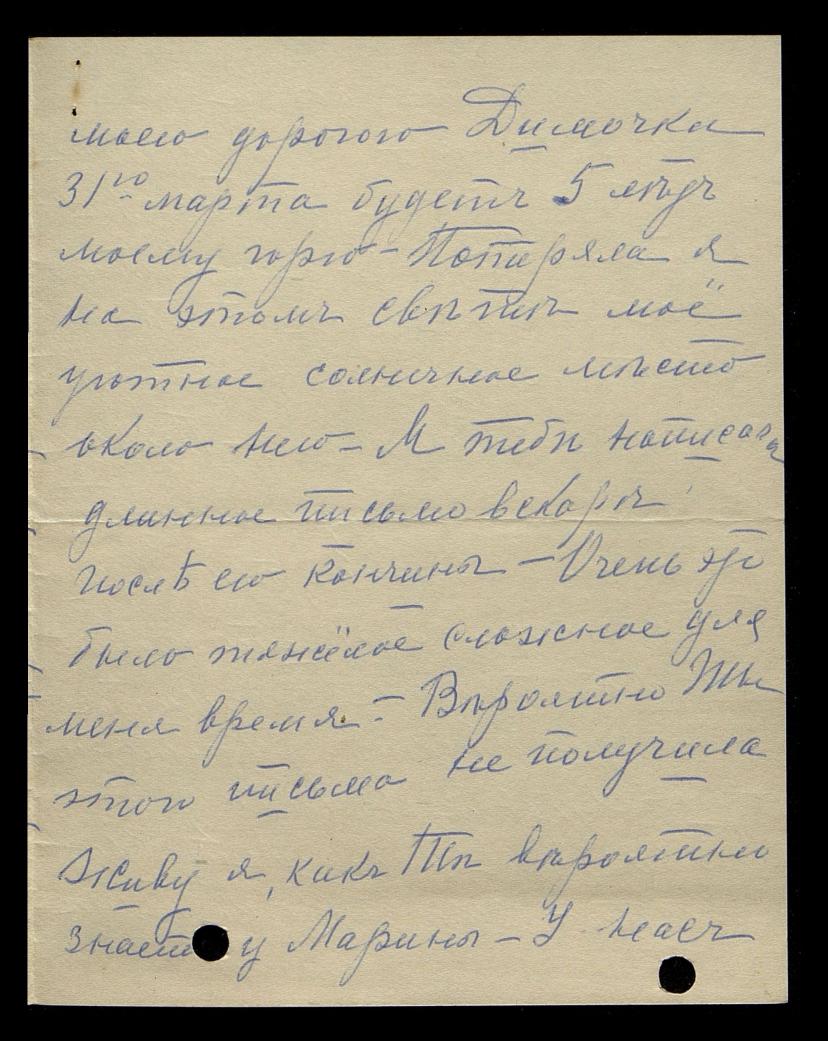 моего дорогого Димочки
31го марта будетъ 5 лѣтъ
моему горю – Потеряла я
на этомъ свѣтѣ моё
уютное солнечное мѣсто
около него – Я тебѣ написала
длинное письмо вскорѣ
послѣ его кончины – Очень это
было тяжёлое сложное для
меня время – Вѣроятно Ты
этого письма не получила
Живу я, какъ Ты вѣроятно
знаешь у Марины – У насъ